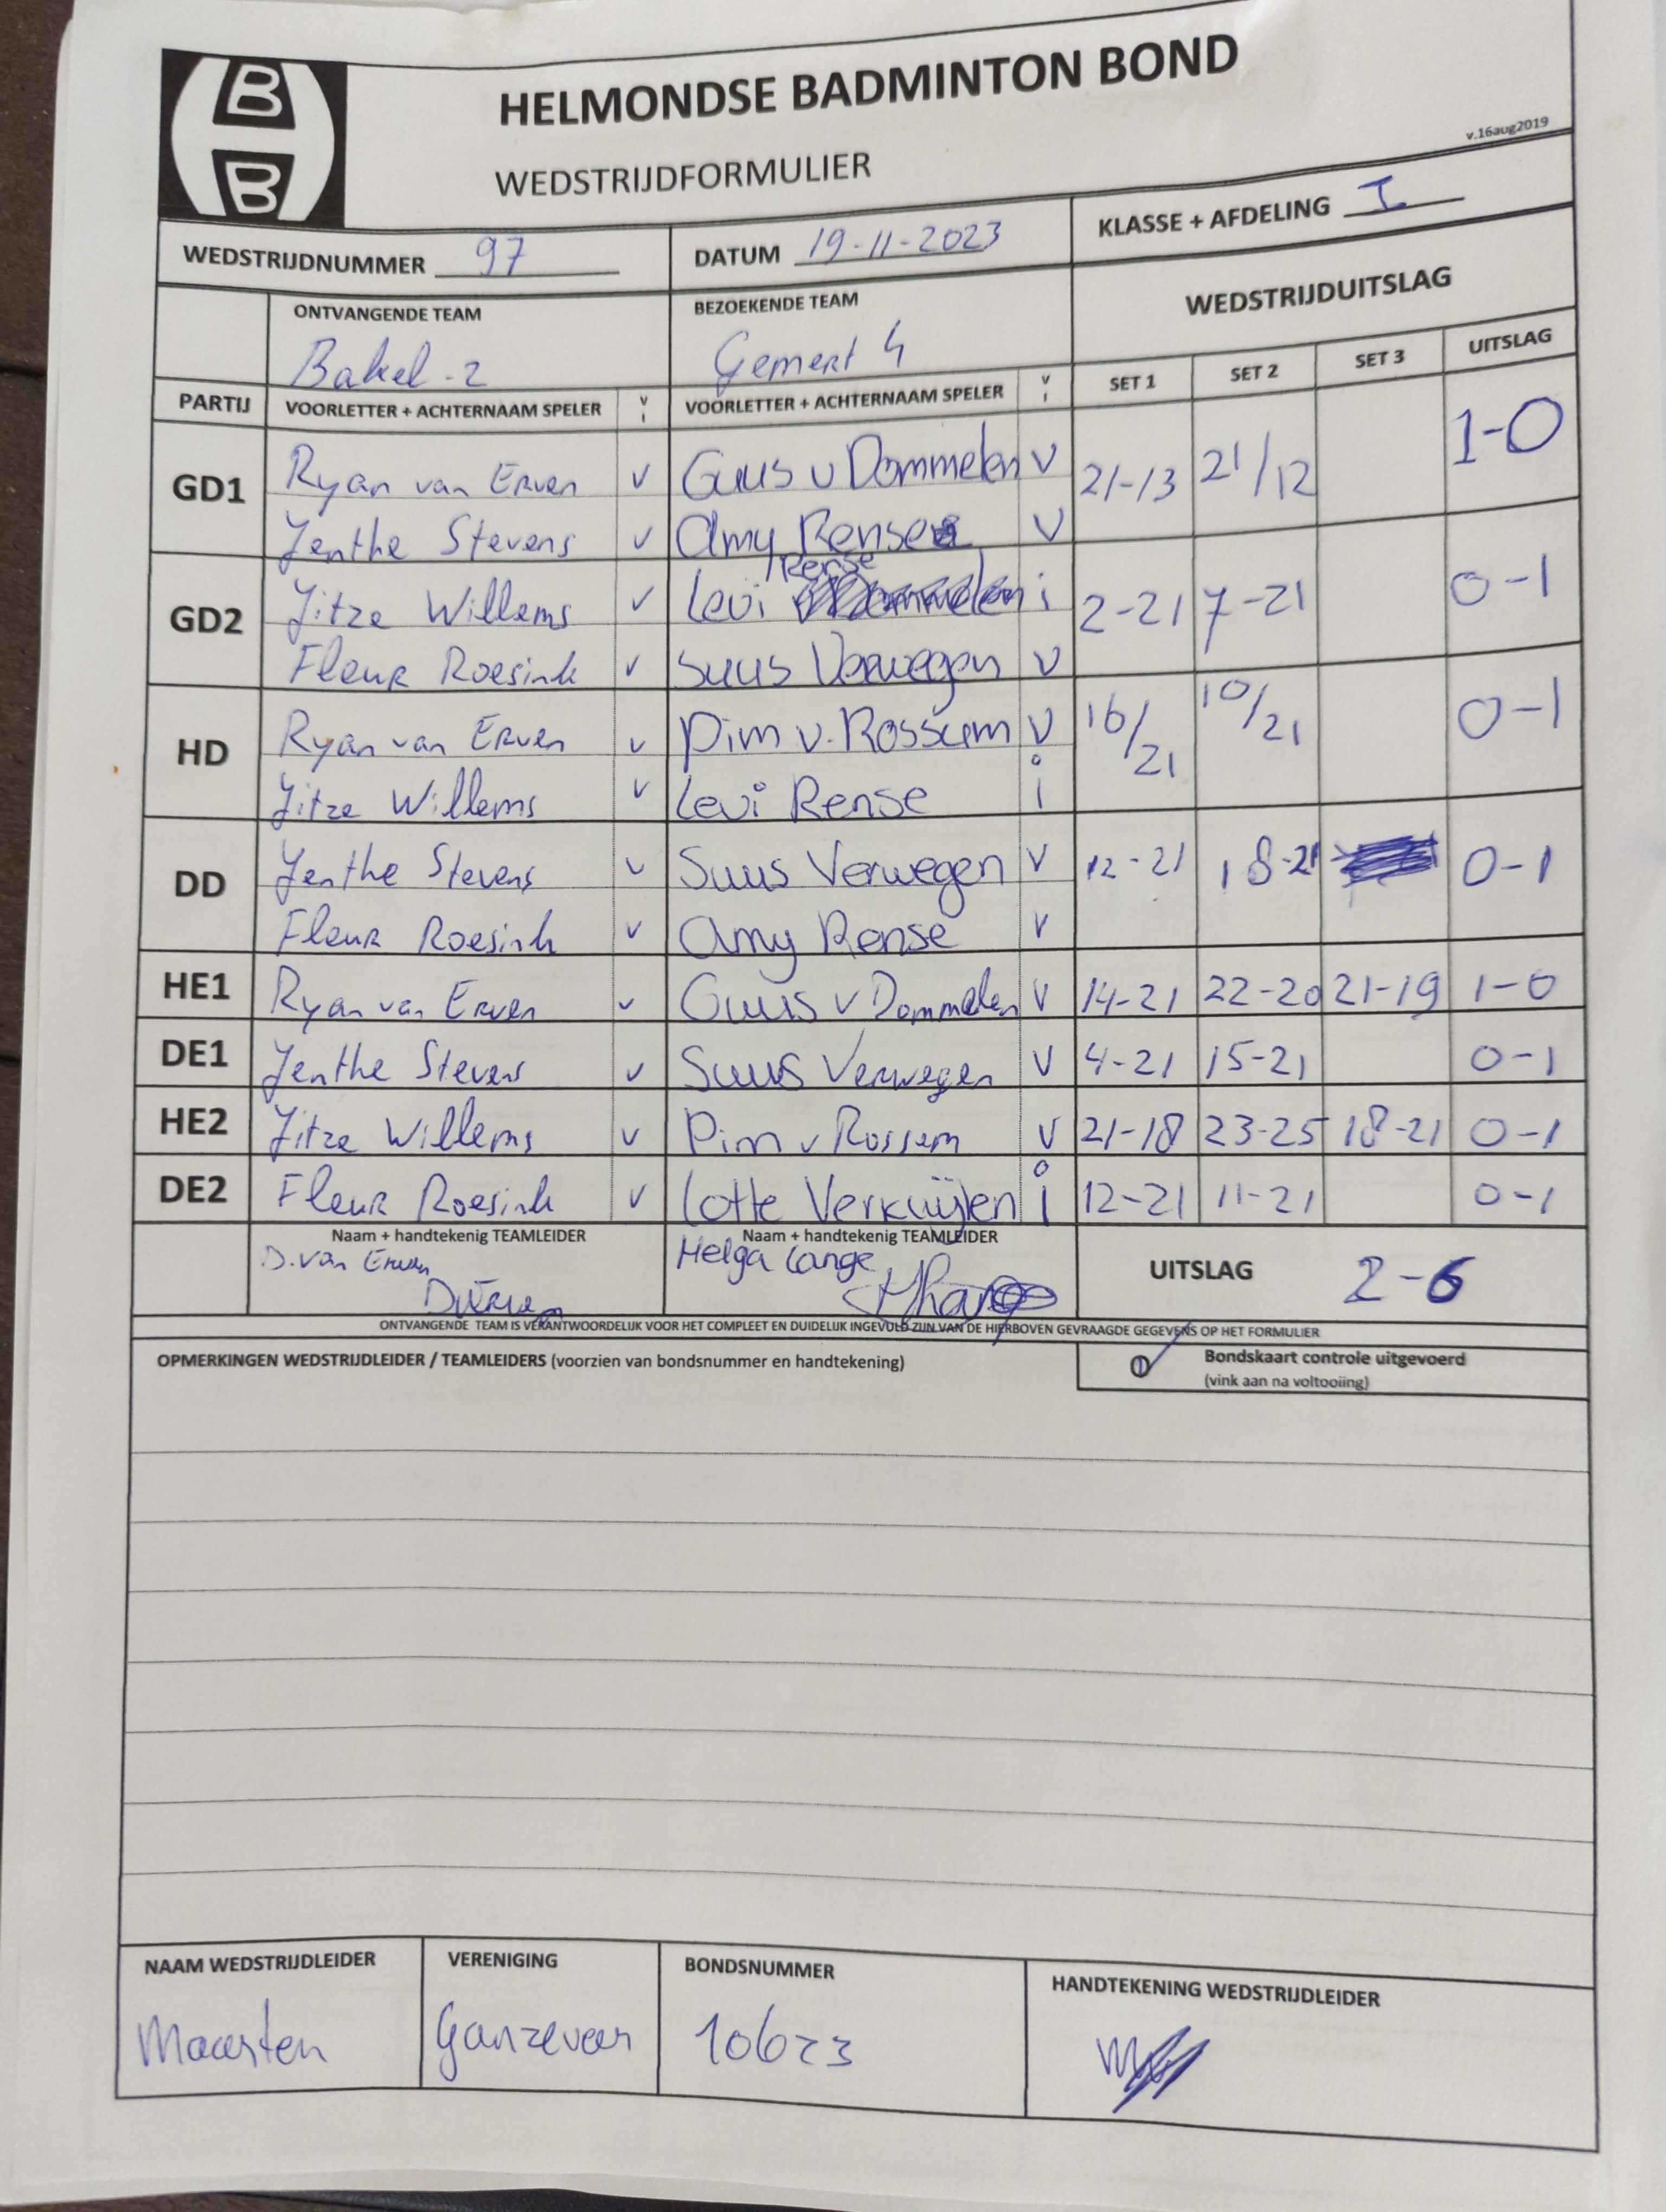 B
B
HELMONDSE BADMINTON BOND
WEDSTRIJDFORMULIER
v.16aug2019
WEDSTRIJDNUMMER 97
DATUM 19-11-2023
KLASSE + AFDELING I
ONTVANGENDE TEAM
BEZOEKENDE TEAM
WEDSTRIJDUITSLAG
Bakel - 2
Gemert 4
PARTIJ VOORLETTER + ACHTERNAAM SPELER V I VOORLETTER + ACHTERNAAM SPELER V I SET 1 SET 2 SET 3 UITSLAG
GD1 Ryan van Erven v Guus v Dommelen v 21-13 21/12 1-0
Jenthe Stevens v Amy Rense v
Rense
GD2 Jitze Willems v Levi i 2-21 7-21 0-1
Fleur Roesink v Suus Verwegen v
HD Ryan van Erven v Pim v. Rossum v 16/21 10/21 0-1
Jitze Willems v Levi Rense i
DD Jenthe Stevens v Suus Verwegen v 12-21 18-21 0-1
Fleur Roesink v Amy Rense v
HE1 Ryan van Erven v Guus v Dommelen v 14-21 22-20 21-19 1-0
DE1 Jenthe Stevens v Suus Verwegen v 4-21 15-21 0-1
HE2 Jitze Willems v Pim v Rossem v 21-18 23-25 18-21 0-1
DE2 Fleur Roesink v Lotte Verkuijlen i 12-21 11-21 0-1
Naam + handtekenig TEAMLEIDER
Naam + handtekenig TEAMLEIDER
D. van Erven
Helga Lange
UITSLAG 2-6
ONTVANGENDE TEAM IS VERANTWOORDELIJK VOOR HET COMPLEET EN DUIDELIJK INGEVULD ZIJN VAN DE HIERBOVEN GEVRAAGDE GEGEVENS OP HET FORMULIER
OPMERKINGEN WEDSTRIJDLEIDER / TEAMLEIDERS (voorzien van bondsnummer en handtekening)
Bondskaart controle uitgevoerd
(vink aan na voltooiing)
NAAM WEDSTRIJDLEIDER VERENIGING BONDSNUMMER HANDTEKENING WEDSTRIJDLEIDER
Maarten Ganzeveer 10673